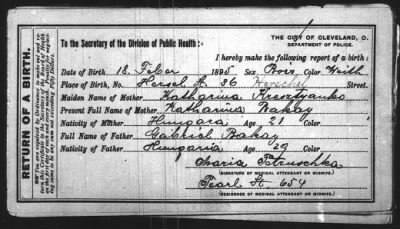 RETURN OF A BIRTH.
THE CITY OF CLEVELAND, O.
DEPARTMENT OF POLICE.
To the Secretary of the Division of Public Health:
I hereby make the following report of a birth:
Date of Birth 18. Feber 1895 Sex Boes Color Weith
Place of Birth, No. Hersch St. 36 Street.
Maiden Name of Mother Katharina
Present Full Name of Mother Katharina Bakay
Nativity of Mother Hungara Age 21 Color
Full Name of Father Gabriel Bakay
Nativity of Father Hungaria Age 29 Color
Maria Petruschka
(SIGNATURE OF MEDICAL ATTENDANT OR MIDWIFE.)
Pearl St. 654
(RESIDENCE OF MEDICAL ATTENDANT OR MIDWIFE.)